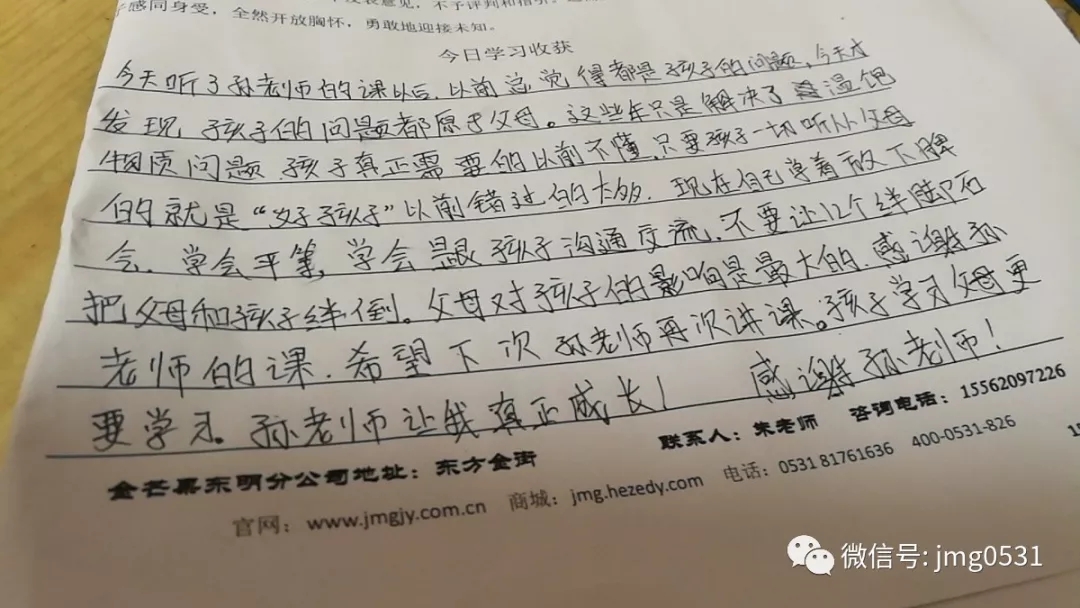 感同身受，全然开放胸怀，勇敢地迎接未知。
今日学习收获
今天听了孙老师的课以后，以前总觉得都是孩子的问题，今天才
发现，孩子的问题都原于父母。这些年只是解决了温饱
物质问题 孩子真正需要的以前不懂，只要孩子一切听从父母
的就是“好孩子”以前错过的太多．现在自己学着放下脾
会．学会平等，学会跟孩子沟通交流．不要让12个绊脚石
把父母和孩子绊倒。父母对孩子的影响是最大的．感谢孙
老师的课．希望下次孙老师再次讲课。孩子学习父母更
要学习。孙老师让我真正成长！ 感谢孙老师！
金芒果东明分公司地址：东方金街 联系人：朱老师 咨询电话：15562097226
官网：www.jmgjy.com.cn 商城：jmg.hezedy.com 电话：0531 81761636 400-0531-826
微信号: jmg0531